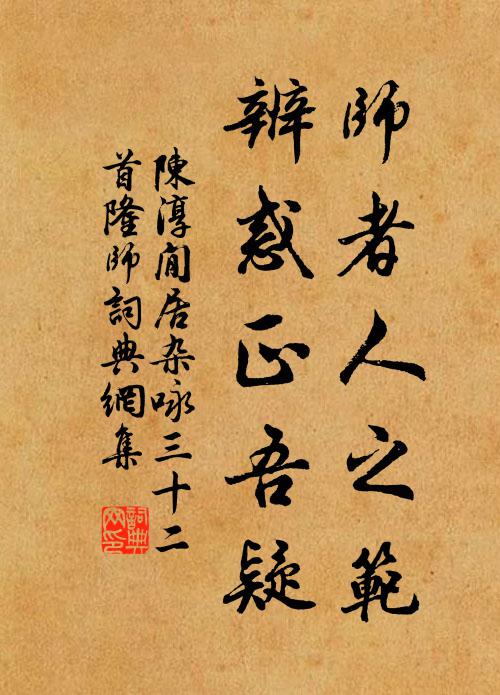 師者人之範
辨惑正吾疑
陳淳閒居杂咏三十二
首隆師詞典網集